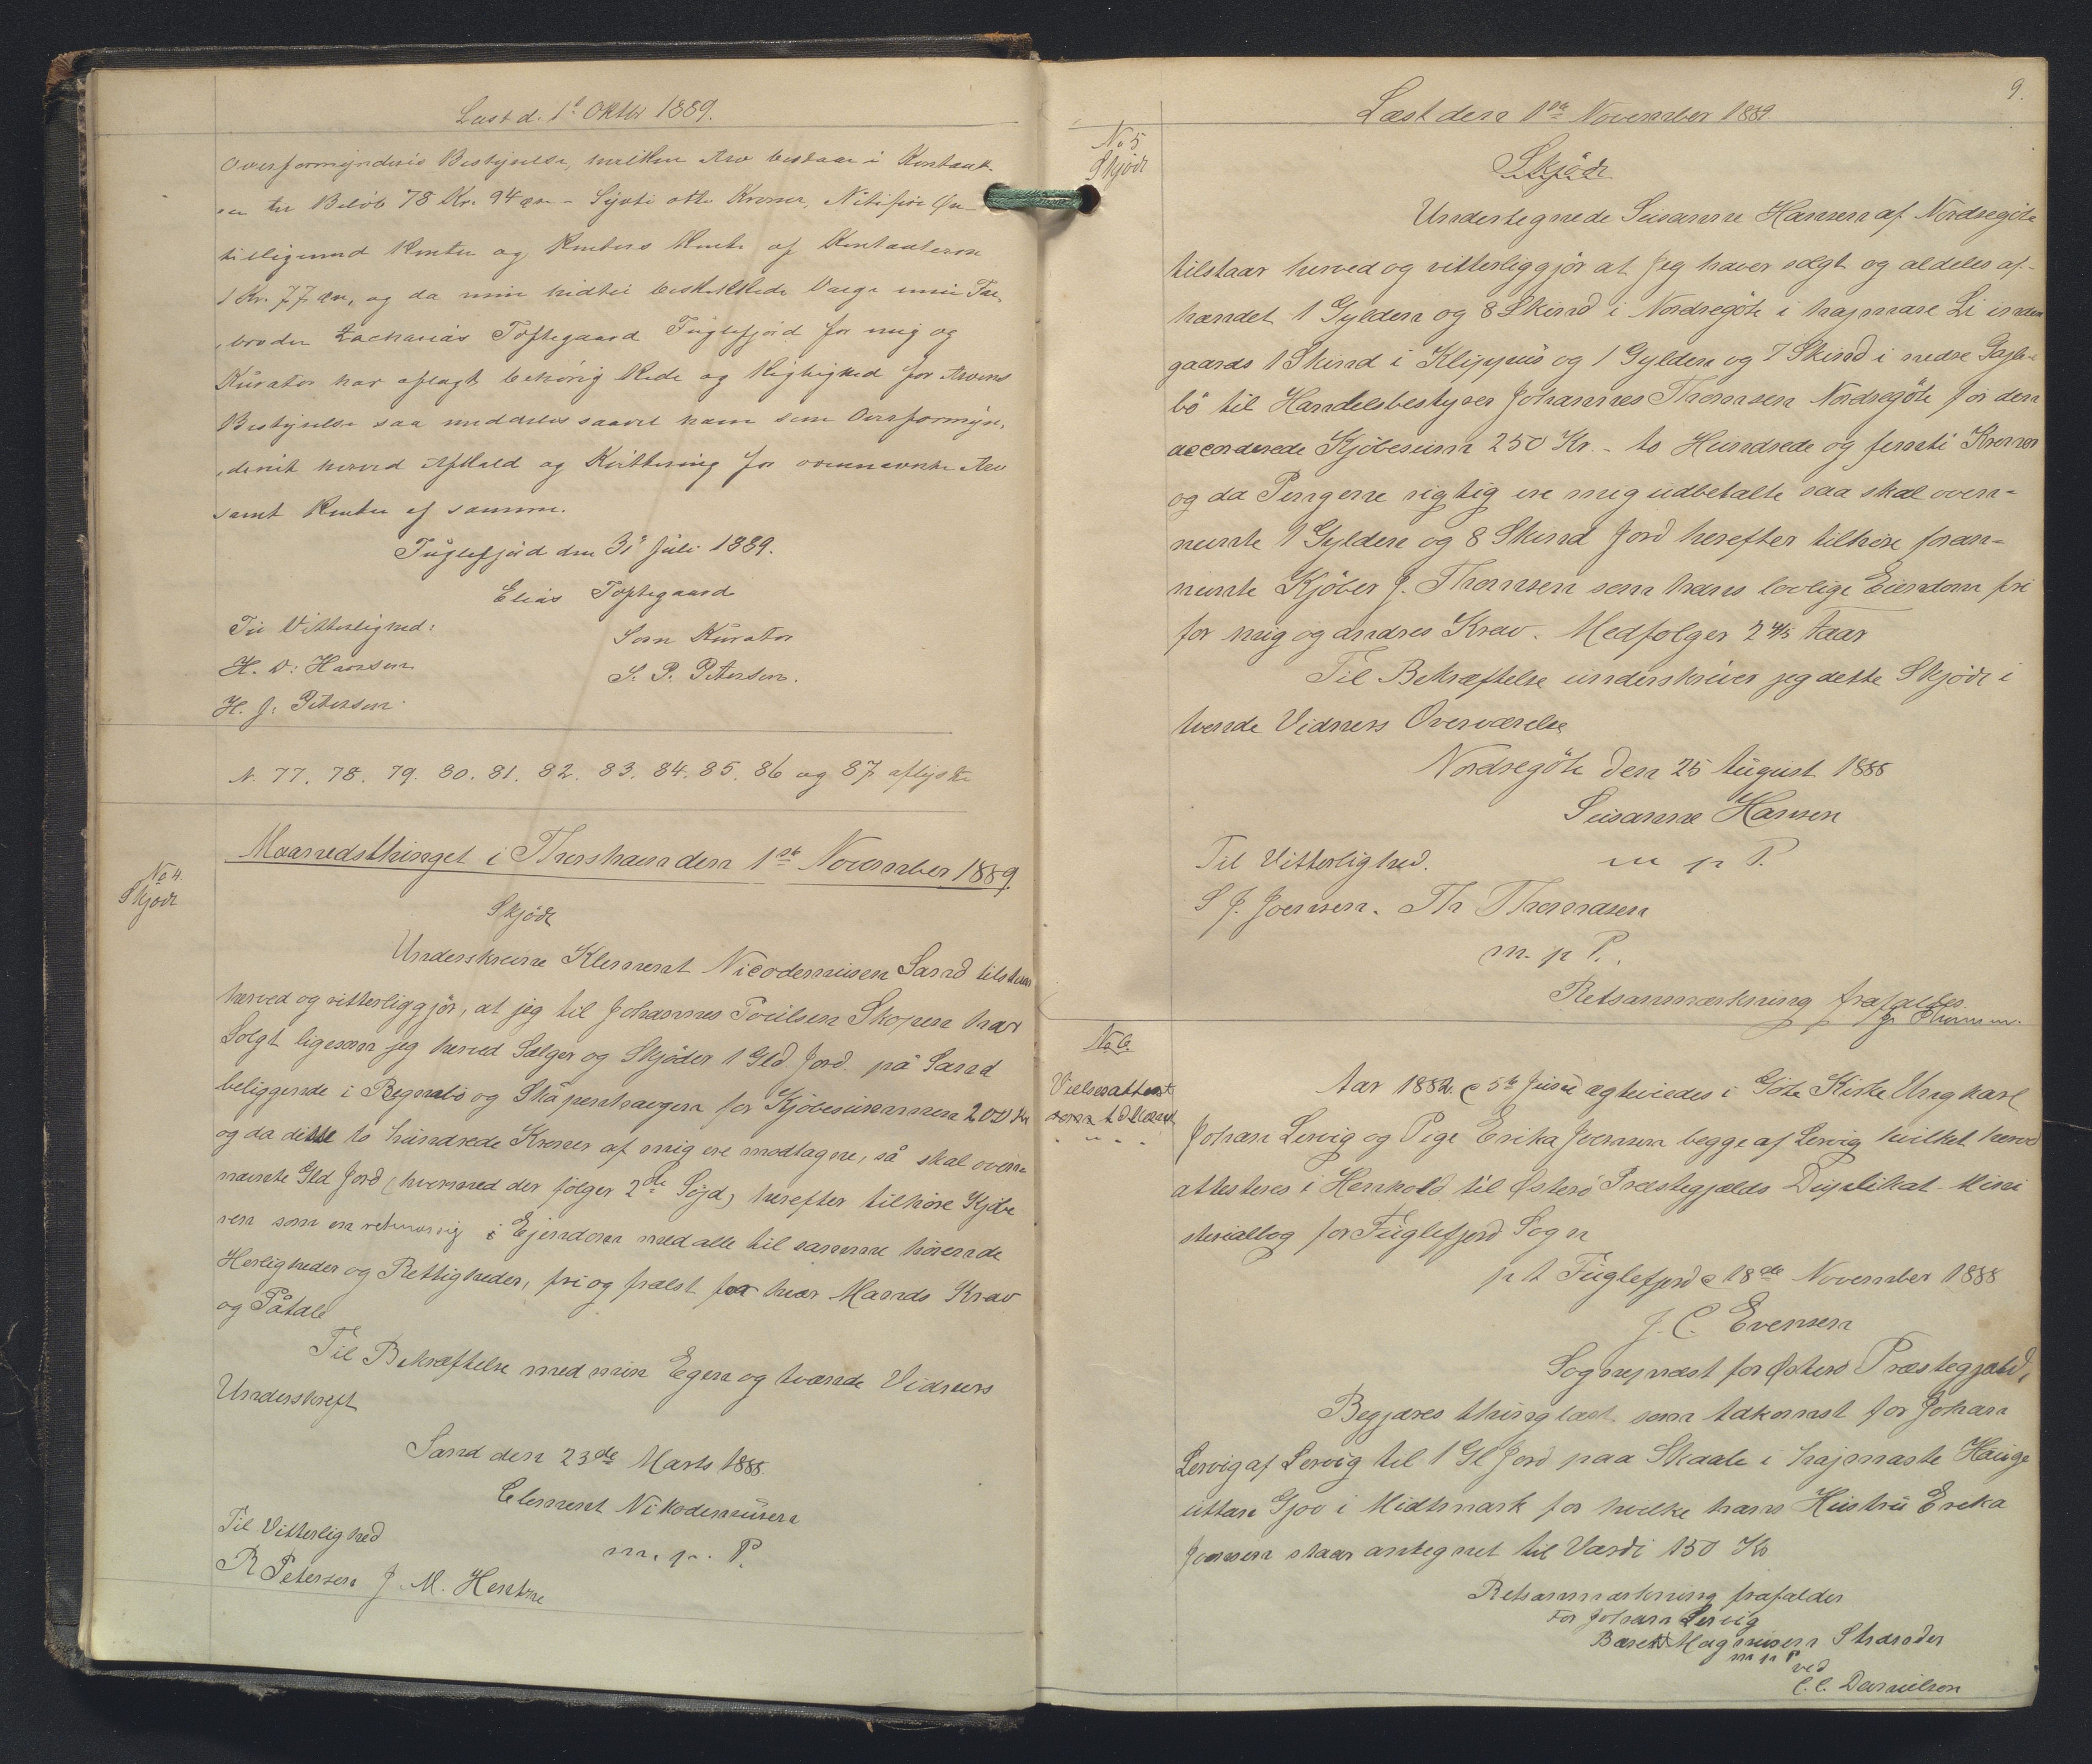 Læst d. 1ᵗ Oktbr 1889.
Overformynderis Bestyrelse, hvilken Arv bestaar i Kontant
en til Beløb 78 Kr. 94 øre - Sytti otte Kroner, Nitifire Øre
tilligemed Renter og Renters Rente af Kontanterne
1 Kr. 77 øre, og da min hidtil beskikkede Værge min Far,
broder Zacharias Toftegaard Fuglefjord for mig og
Kurator har aflagt behörig Rede og Rigtighed for Arvens
Bestyrelse saa meddeles saavel ham som Overformyn,
,deriet herved Afkald og Kvittering for ovennævnte Arv
samt Renter af samme.
Fuglefjord den 31 Juli 1889.
Elias Toftegaard
Til Vitterlighed:
Som Kurator
H. D: Hansen
S. P. Petersen.
H. J. Petersen
N. 77. 78. 79. 80. 81. 82. 83. 84. 85. 86 og 87 aflyste
Maanedsthinget i Thorshavn den 1ˢᵗᵉ November 1889.
No 4.
Skjøde
Skjöde
Underskrevne Klement Nicodemusen Sand tilstaar
herved og vitterliggjör, at jeg til Johannes Poulsen Skopen har
Solgt ligesom jeg herved Sælger og Skjöder 1 Gld. Jord på Sand
beliggende i Bøgnebö og Skåpenhavgen for Kjöbesummen 200 Kr
og da disse to hundrede Kroner af mig ere modtagne, så skal oven=
nævnte Gld Jord (hvormed der fölger 2 Söjd) herefter tilhöre Kjöbe
ren som en retmæssig Ejendom med alle til samme hörende
Herligheder og Rettigheder, fri og frælst for hver Mands Krav
og Påtale
Til Bekræftelse med min Egen og tvænde Vidners
Underskreft
Sand den 23de Marts 1888
Clement Nikodemusen
m. p. P.
Til Vitterlighed
R Petersen J. M. Hentze
9.
Læst den 1ste November 1889
No 5
Skjöde
Skjöde
Undertegnede Susanne Hansen af Nordregöte
tilstaar herved og vitterliggjör at Jeg haver solgt og aldeles af-
hændet 1 Gylden og 8 Skind i Nordregöte i hajmare Li innan
gaards 1 Skind i Klippus og 1 Gylden og 7 Skind i nedre Gajle-
bö til Handelsbestyrer Johannes Thomsen Nordregöte for den
accorderede Kjöbesum 250 Kr. - to Hundrede og femti Kroner
og da Pengene rigtig ere mig udbetalte saa skal oven-
nævnte 1 Gylden og 8 Skind Jord herefter tilhöre foran-
nævnte Kjöber J. Thomsen som hans lovlige Eiendom fri
for mig og andres Krav. Medfølger 2 4/5 Faar
Til Bekræftelse underskriver jeg dette Skjöde i
tvende Vidners Overværelse
Nordregöte den 25 August 1888
Susanne Hansen
m p P.
Til Vitterlighed.
S J. Joensen. Th Thomasen
m. p P.
Retsanmærkning frafaldes
J. Thomsen.
No 6.
Vielsesattest
som Adkomst
" " " "
Aar 1882 d 5te Juni ægteviedes i Göte Kirke Ungkarl
Johan Lervig og Pige Erika Joensen begge af Lervig hvilket herved
attesteres i Henhold til Østerö Præstegjælds Duplikat-Mini
sterialbog for Fuglefjord Sogn
p t Fuglefjord d 18de November 1888
J. C. Evensen
Sognepræst for Østerö Præstegjæld,
Begjæres thinglæst som Adkomst for Johan
Lervig af Lervig til 1 Gl Jord paa Skaale i hajmaste Hauge
uttan Gjov i Midtmark for hvilke hans Hustru Erika
Joensen staar antegnet til Værdi 150 Kr
Retsanmærkning frafalder
For Johan Lervig
Magnusen Strænder
m p P
ved
C. C. Danielsen